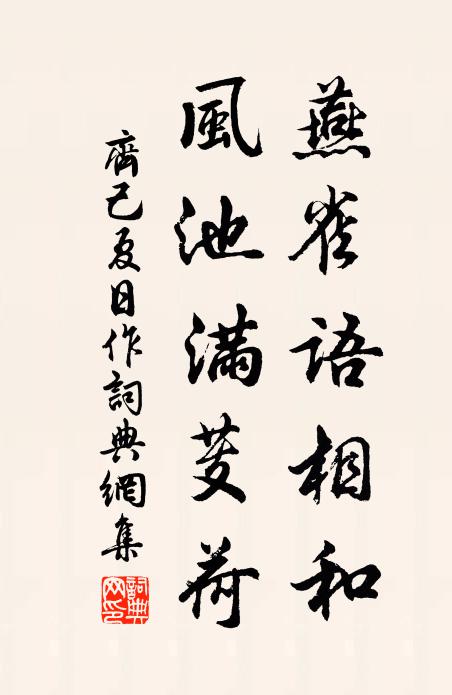 燕雀語相和
風池滿芰荷
齊己夏日作詞典網集
詞典網印